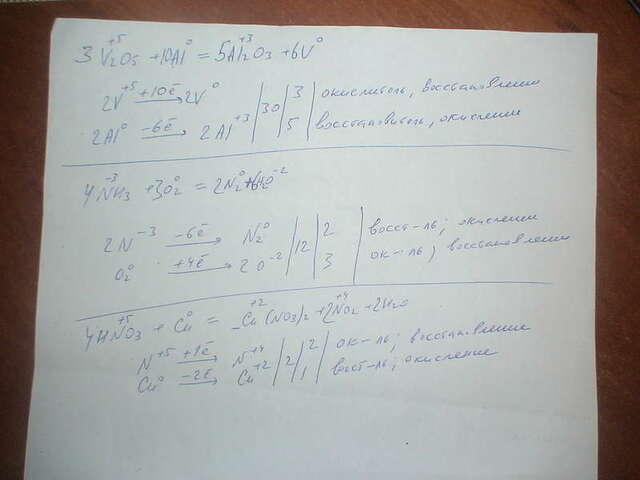 3V₂⁺⁵O₅ + 10Al⁰ = 5Al₂⁺³O₃ + 6V⁰
2V⁺⁵ +10ē → 2V⁰ | 30 | 3 | окислитель, восстановление
2Al⁰ -6ē → 2Al⁺³ | 5 | восстановитель, окисление
4N⁻³H₃ + 3O₂⁰ = 2N₂⁰ +
2N⁻³ -6ē → N₂⁰ | 12 | 2 | восст-ль; окисление
O₂⁰ +4ē → 2O⁻² | 3 | ок-ль; восстановление
4HN⁺⁵O₃ + Cu⁰ = Cu⁺²(NO₃)₂ + 2N⁺⁴O₂ + 2H₂O
N⁺⁵ +1ē → N⁺⁴ | 2 | 2 | ок-ль; восстановление
Cu⁰ -2ē → Cu⁺² | 1 | восст-ль; окисление